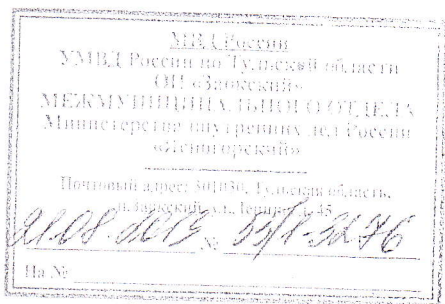 МВД России
УМВД России по Тульской области
ОП «Заокский»
МЕЖМУНИЦИПАЛЬНОГО ОТДЕЛА
Министерства внутренних дел России
«Ясногорский»
Почтовый адрес: 301030, Тульская область,
п. Заокский, ул. 45
21.08.2013 №
На №